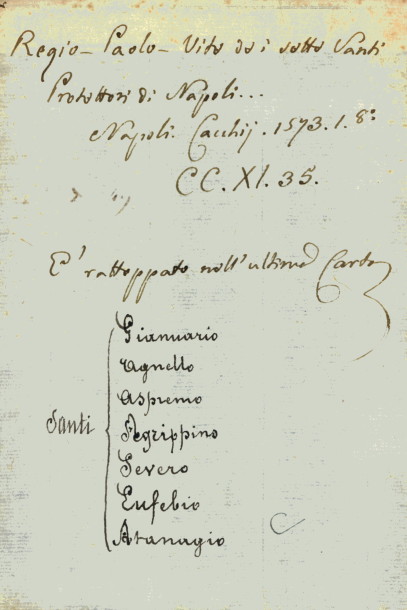 Regio - Paolo - Vite de i sette Santi
Protettori di Napoli...
Napoli. Cacchij. 1573. 1. 8º
CC. XI. 35.
E' rattoppato nell' ultima Carta
Santi
Gianuario
Agnello
Aspremo
Agrippino
Severo
Eufebio
Atanagio